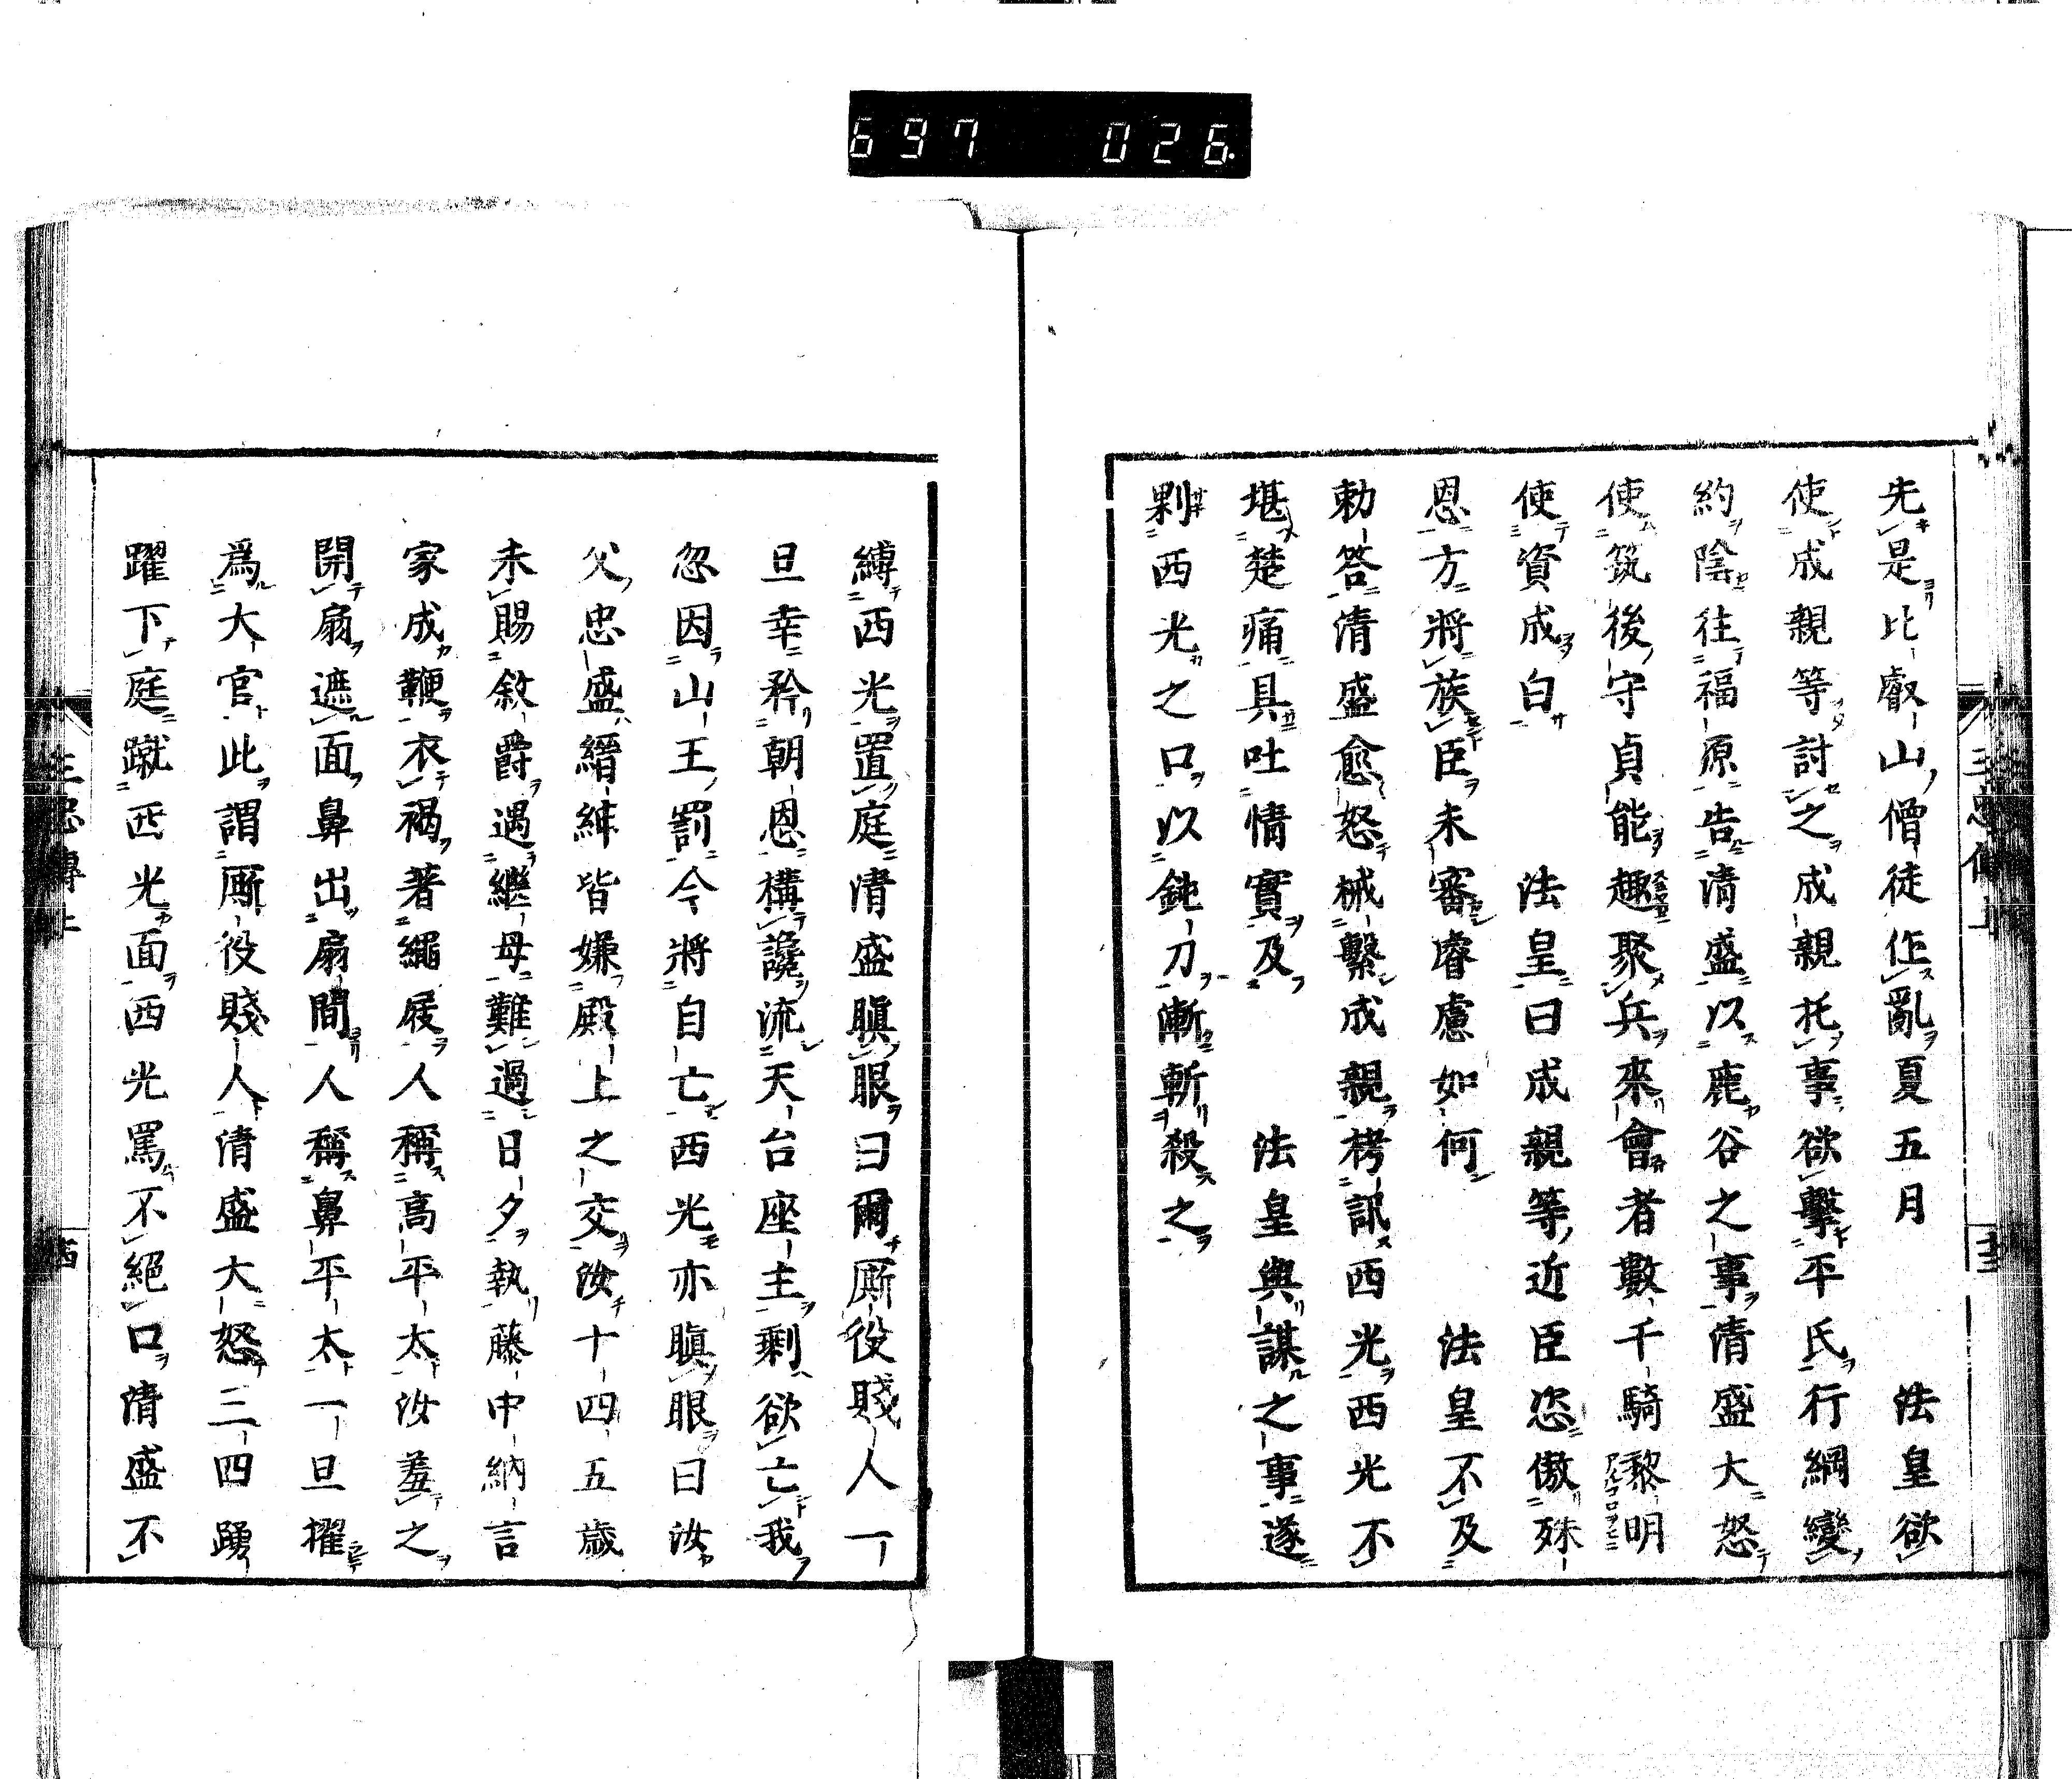 697 026.
先是比叡山僧徒作亂夏五月 法皇欲
使成親等討之成親托事欲擊平氏行綱變
約陰往福原告清盛以鹿谷之事清盛大怒
使筑後守貞能趣聚兵來會者數千騎黎明
使資成白 法皇曰成親等近臣恣傲殊
恩方將族臣未審睿慮如何 法皇不及
勅答清盛愈怒械繫成親栲訊西光西光不
堪楚痛具吐情實及 法皇與謀之事遂
剿西光之口以鈍刀漸斬殺之
縛西光置庭清盛瞋眼曰爾厮役賤人一
旦幸矜朝恩構讒流天台座主剩欲亡我
忽因山王罰今將自亡西光亦瞋眼曰汝
父忠盛縉紳皆嫌殿上之交汝十四五歲
未賜敘爵遇繼母難過日夕執藤中納言
家成鞭衣褐著繩屐人稱高平太汝羞之
開扇遮面鼻出扇間人稱鼻平太一旦擢
爲大官此謂厮役賤人清盛大怒三四踴
躍下庭蹴西光面西光罵不絕口清盛不